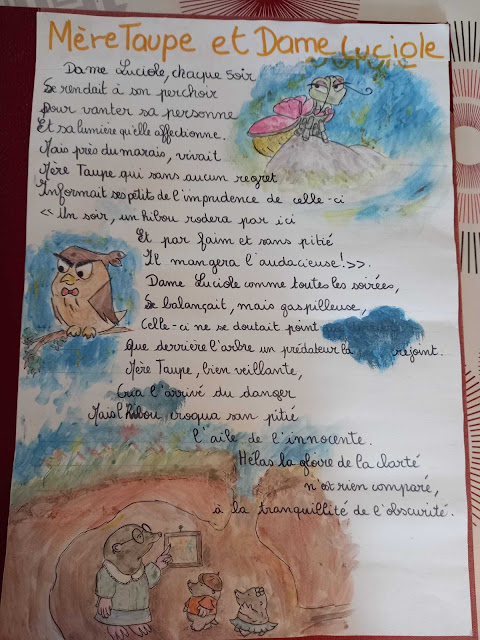 Mère Taupe et Dame Luciole
Dame Luciole, chaque soir
Se rendait à son perchoir
pour vanter sa personne
Et sa lumière qu'elle affectionne.
Mais près du marais, vivait
Mère Taupe qui sans aucun regret
Informait ses petits de l'imprudence de celle-ci
<< Un soir, un hibou rodera par ici
Et par faim et sans pitié
Il mangera l'audacieuse! >>.
Dame Luciole comme toutes les soirées,
Se balançait, mais gaspilleuse,
Celle-ci ne se doutait point
que derrière l'arbre un prédateur la rejoint.
Mère Taupe, bien veillante,
Cria l'arrivé du danger
Mais l'hibou, croqua san pitié
l'aile de l'innocente.
Hélas la gloire de la clarté
n'est rien comparé,
à la tranquillité de l'obscurité.